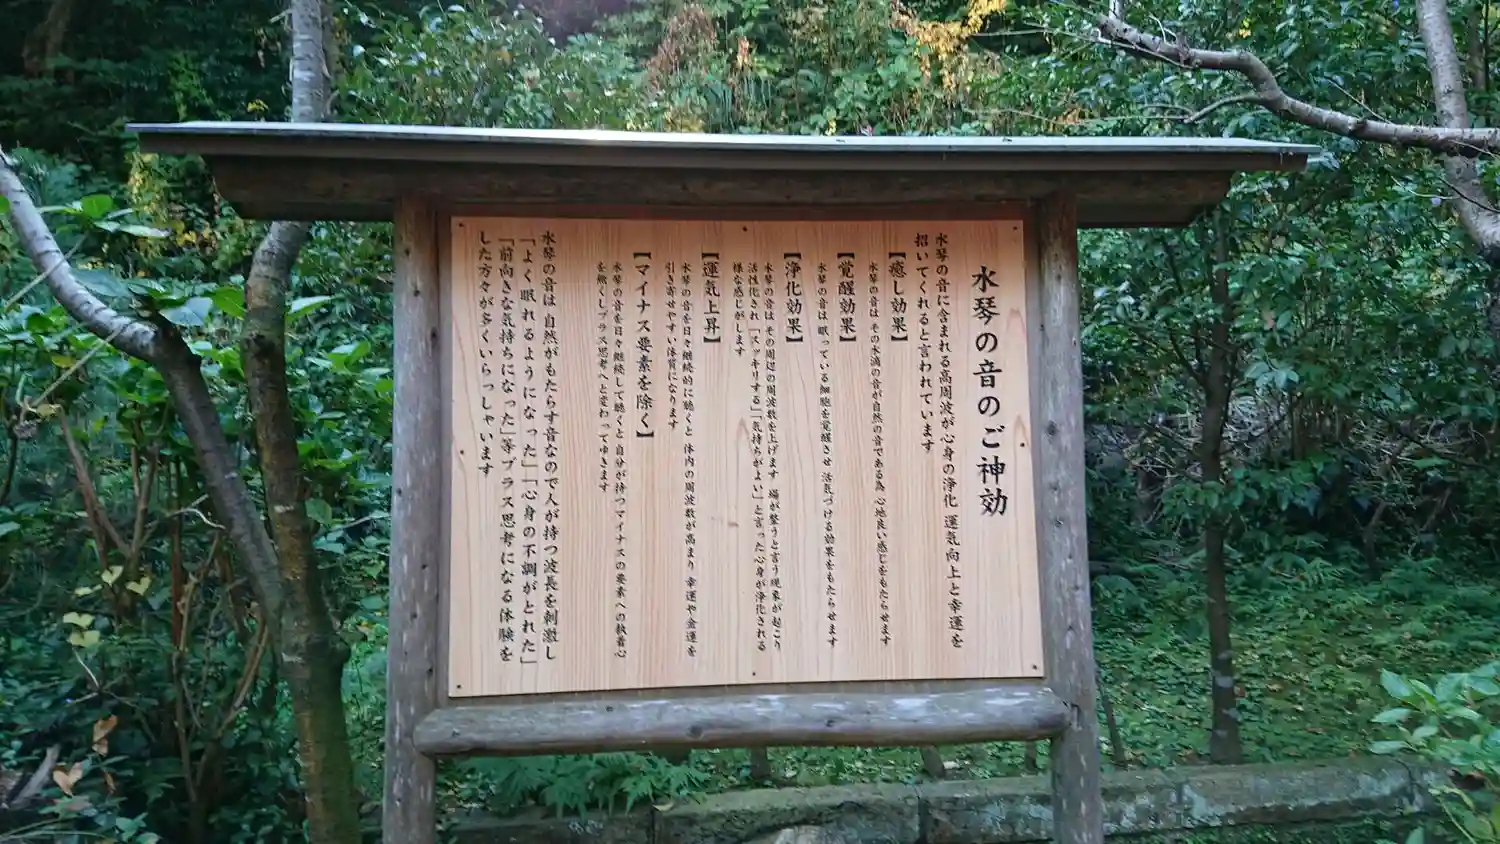 水琴の音のご神効
水琴の音に含まれる高周波が心身の浄化 運気向上と幸運を
招いてくれると言われています
【癒し効果】
水琴の音は その水滴の音が自然の音である為 心地良い感じをもたらせます
【覚醒効果】
水琴の音は 眠っている細胞を覚醒させ 活気づける効果をもたらせます
【浄化効果】
水琴の音は その周辺の周波数を上げます 場が整うと言う現象が起こり
活性化され 「スッキリする」「気持ちがよい」と言った心身が浄化される
様な感じがします
【運気上昇】
水琴の音を日々継続的に聴くと 体内の周波数が高まり 幸運や金運を
引き寄せやすい体質になります
【マイナス要素を除く】
水琴の音を日々継続して聴くと 自分が持つマイナスの要素への執着心
を無くしプラス思考へと変わってゆきます
水琴の音は 自然がもたらす音なので人が持つ波長を刺激し
「よく眠れるようになった」「心身の不調がとれた」
「前向きな気持ちになった」等プラス思考になる体験を
した方々が多くいらっしゃいます